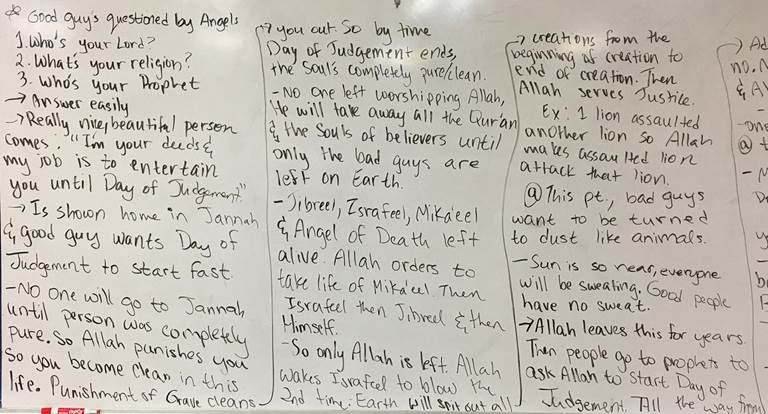 * Good guy's questioned by Angels
1. Who's your Lord?
2. What's your religion?
3. Who's your Prophet
→ Answer easily
→ Really nice, beautiful person
comes: "I'm your deeds &
my job is to entertain
you until Day of Judgement."
→ Is shown home in Jannah
& good guy wants Day of
Judgement to start fast.
- No one will go to Jannah
until person was completely
pure. So Allah punishes you
so you become clean in this
life. Punishment of Grave cleans
→ you out. So by time
Day of Judgement ends,
the soul's completely pure/clean.
- No one left worshipping Allah,
He will take away all the Qur'an
& the souls of believers until
only the bad guys are
left on Earth.
- Jibreel, Israfeel, Mika'eel
& Angel of Death left
alive. Allah orders to
take life of Mika'eel Then
Israfeel then Jibreel & then
Himself.
- So only Allah is left. Allah
wakes Israfeel to blow the
2nd time: Earth will spit out all
→ creations from the
beginning of creation to
end of creation. Then
Allah serves Justice.
Ex: 1 lion assaulted
another lion so Allah
makes assaulted lion
attack that lion.
@ This pt., bad guys
want to be turned
to dust like animals.
- Sun is so near, everyone
will be sweating. Good people
have no sweat.
→ Allah leaves this for years.
Then people go to prophets to
ask Allah to start Day of
Judgement. All the way from
→ Ad
no. N
& A
- one
@ t
- M